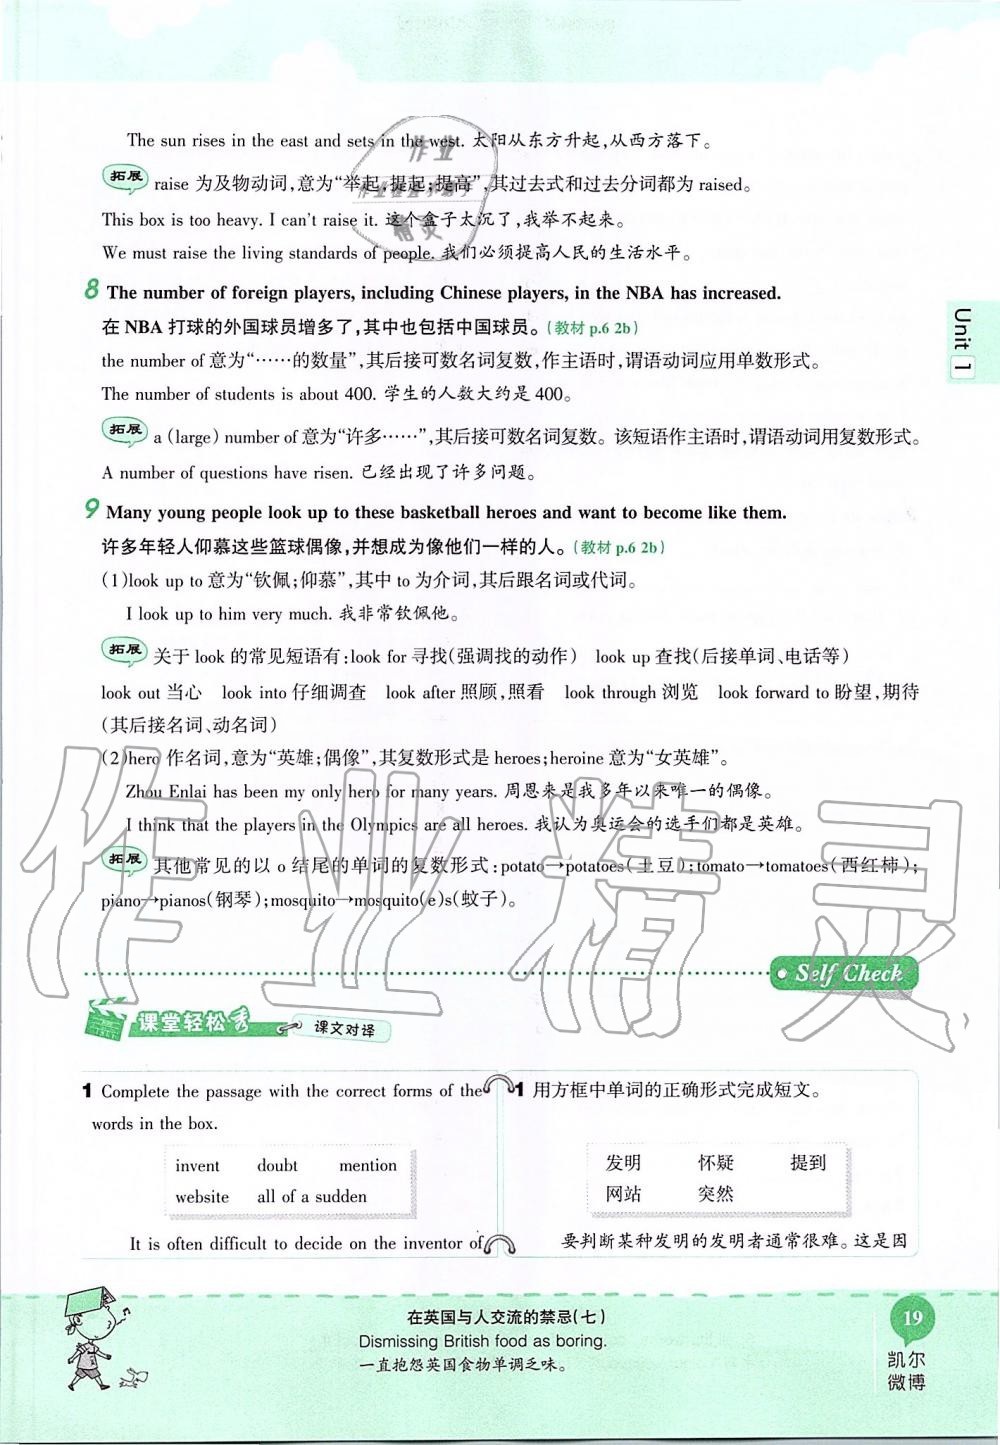 The sun rises in the east and sets in the west. 太阳从东方升起,从西方落下。
拓展 raise 为及物动词,意为“举起;提起;提高”,其过去式和过去分词都为 raised。
This box is too heavy. I can't raise it. 这个盒子太沉了,我举不起来。
We must raise the living standards of people. 我们必须提高人民的生活水平。
8 The number of foreign players, including Chinese players, in the NBA has increased.
在 NBA 打球的外国球员增多了,其中也包括中国球员。(教材 p.6 2b)
the number of 意为“……的数量”,其后接可数名词复数,作主语时,谓语动词应用单数形式。
The number of students is about 400. 学生的人数大约是 400。
拓展 a (large) number of 意为“许多……”,其后接可数名词复数。该短语作主语时,谓语动词用复数形式。
A number of questions have risen. 已经出现了许多问题。
9 Many young people look up to these basketball heroes and want to become like them.
许多年轻人仰慕这些篮球偶像,并想成为像他们一样的人。(教材 p.6 2b)
(1)look up to 意为“钦佩;仰慕”,其中 to 为介词,其后跟名词或代词。
I look up to him very much. 我非常钦佩他。
拓展 关于 look 的常见短语有:look for 寻找(强调找的动作) look up 查找(后接单词、电话等)
look out 当心 look into 仔细调查 look after 照顾,照看 look through 浏览 look forward to 盼望,期待
(其后接名词、动名词)
(2)hero 作名词,意为“英雄;偶像”,其复数形式是 heroes;heroine 意为“女英雄”。
Zhou Enlai has been my only hero for many years. 周恩来是我多年以来唯一的偶像。
I think that the players in the Olympics are all heroes. 我认为奥运会的选手们都是英雄。
拓展 其他常见的以 o 结尾的单词的复数形式:potato→potatoes(土豆);tomato→tomatoes(西红柿);
piano→pianos(钢琴);mosquito→mosquito(e)s(蚊子)。
Self Check
课堂轻松秀 课文对译
1 Complete the passage with the correct forms of the
words in the box.
invent doubt mention
website all of a sudden
It is often difficult to decide on the inventor of
1 用方框中单词的正确形式完成短文。
发明 怀疑 提到
网站 突然
要判断某种发明的发明者通常很难。这是因
Unit 1
在英国与人交流的禁忌(七)
Dismissing British food as boring.
一直抱怨英国食物单调乏味。
19
凯尔
微博
作业精灵